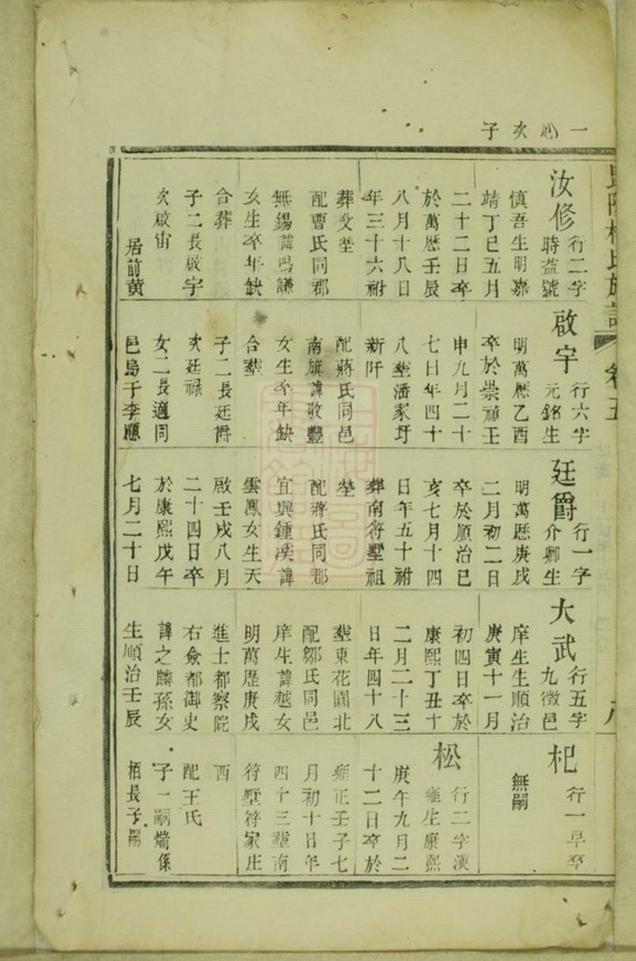 一心次子
族譜
卷五
八
汝修
行二字
時益號
慎吾生明嘉
靖丁巳五月
二十二日卒
於萬歷壬辰
八月十八日
年三十六祔
葬父塋
配曹氏同郡
無錫諱鳴謙
女生卒年缺
合葬
子二長啟宇
次啟宙
居前黃
啟宇
行六字
元銘生
明萬歷乙酉
卒於崇禎壬
申九月二十
七日年四十
八葬潘家圩
新阡
配蔣氏同邑
南旗諱敬豐
女生卒年缺
合葬
子二長廷爵
次廷祿
女二長適同
邑烏于李應
廷爵
行一字
介卿生
明萬歷庚戌
二月初二日
卒於順治己
亥七月十四
日年五十祔
葬南符墅祖
塋
配蔣氏同郡
宜興鍾溪諱
雲鳳女生天
啟壬戌八月
二十四日卒
於康熙戊午
七月二十日
大武
行五字
九徵邑
庠生生順治
庚寅十一月
初四日卒於
康熙丁丑十
二月二十三
日年四十八
葬東花園北
配鄒氏同邑
庠生諱越女
明萬歷庚戌
進士都察院
右僉都御史
諱之麟孫女
生順治壬辰
杞
行一早卒
無嗣
松
行二字漢
維生康熙
庚午九月二
十二日卒於
雍正壬子七
月初十日年
四十三葬南
符墅符家庄
西
配王氏
子一嗣㷆係
栢長子嗣